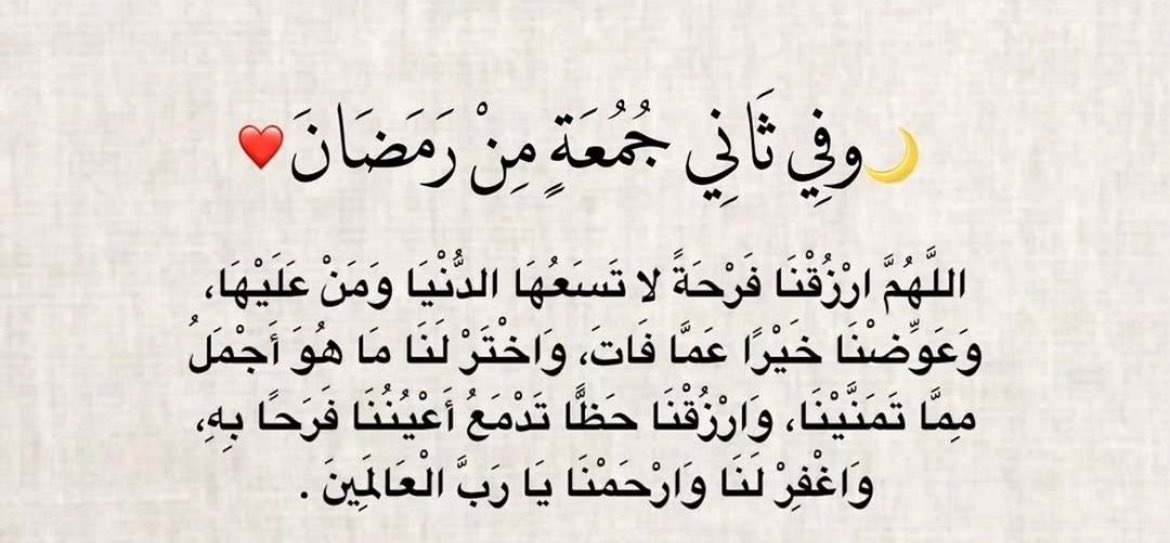 🌙وفِي ثَانِي جُمُعَةٍ مِنْ رَمَضَانَ❤️
اللَّهُمَّ ارْزُقْنَا فَرْحَةً لا تَسَعُهَا الدُّنْيَا وَمَنْ عَلَيْهَا،
وَعَوِّضْنَا خَيْرًا عَمَّا فَاتَ، وَاخْتَرْ لَنَا مَا هُوَ أَجْمَلُ
مِمَّا تَمَنَّيْنَا، وَارْزُقْنَا حَظًّا تَدْمَعُ أَعْيُنُنَا فَرَحًا بِهِ،
وَاغْفِرْ لَنَا وَارْحَمْنَا يَا رَبَّ الْعَالَمِينَ .